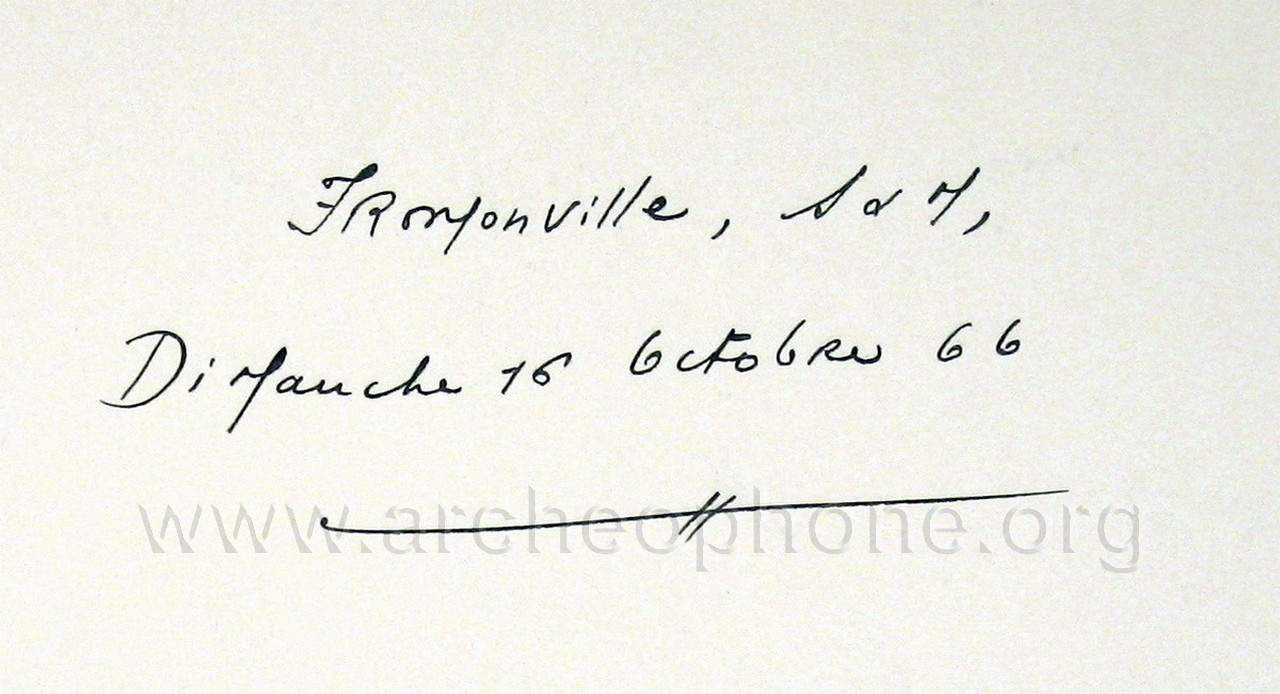 Fromonville, S & M,
Dimanche 16 Octobre 66
www.archeophone.org